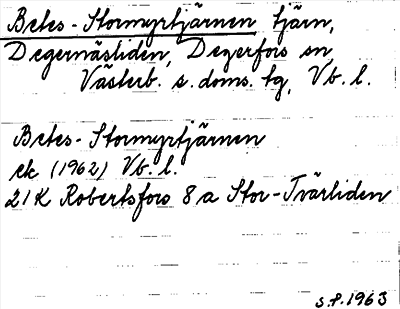 Betes-Stormyrtjärnen tjärn,
Degernäsliden, Degerfors sn,
Västerb. s. doms. tg, Vb. l.
Betes-Stormyrtjärnen
ek (1962) Vb. l.
21K Robertsfors 8a Stor-Tvärliden
S.P. 1963